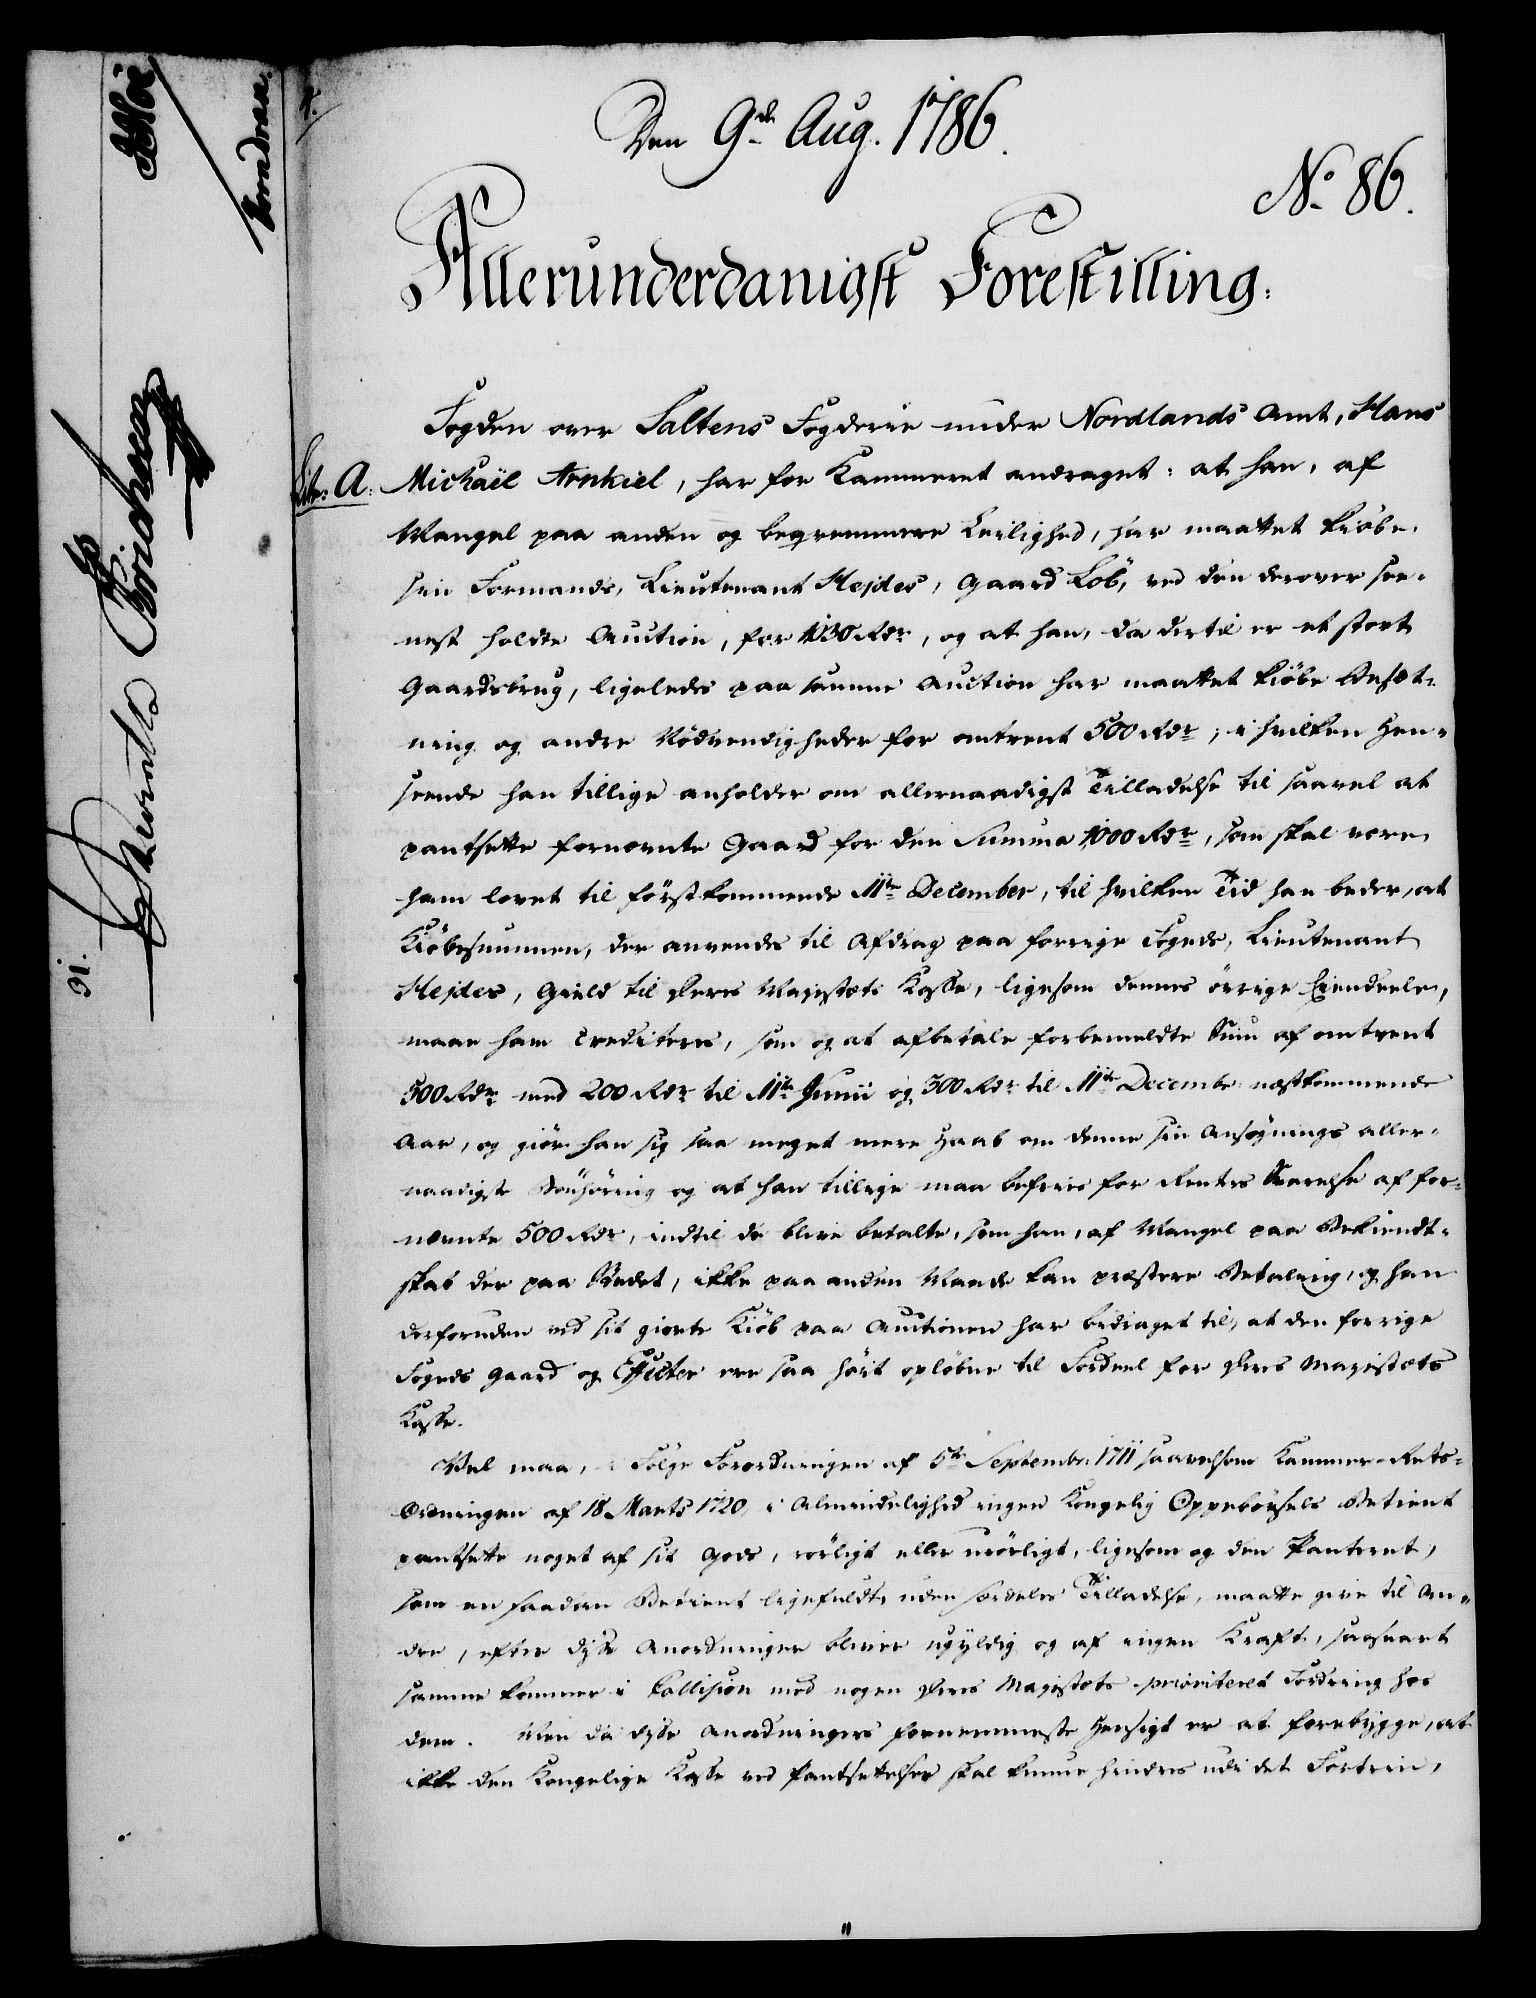 Den 9de Aug. 1786.
No 86.
Allerunderdanigst Forestilling.
Fogden over Saltens Fogderie under Nordlands Amt, Hans
Litr: A. Michaël Arnkiel, har for Kammeret andraget: at han, af
Mangel paa anden og beqvemmere Leilighed, har maattet kiöbe
sin Formands, Lieutenant Hejdes, Gaard Löb, ved den derover see-
nest holdte Auction, for 1030 Rdr, og at han, da dertil er et stort
Gaardsbrug, ligeledes paa samme Auction har maattet kiöbe Besæt-
ning og andre Nödvendigheder for omtrent 500 Rdr; i hvilken Hen-
seende han tillige anholder om allernaadigst Tilladelse til saavel at
pantsette fornevnte Gaard for den Summa 1000 Rdr, som skal være
ham lovet til förstkommende 11te December, til hvilken Tid han beder, at
Kiöbesummen, der anvendes til Afdrag paa forrige Fogeds, Lieutenant
Hejdes, Gield til Deres Majestæts Kasse, ligesom dennes övrige Eiendeele,
maae ham crediteres, som og at afbetale forbemeldte Sum af omtrent
500 Rdr med 200 Rdr til 11te Junii og 300 Rdr til 11te Decembr næstkommende
Aar, og giör han sig saa meget mere Haab om denne sin Ansögnings aller-
naadigste Bönhöring og at han tillige maa befries for Renters Svarelse af for-
nævnte 500 Rdr, indtil de blive betalte, som han, af Mangel paa Bekiendt-
skab der paa Stedet, ikke paa anden Maade kan præstere Betaling, og han
desforuden ved sit giorte Kiöb paa Auctionen har bidraget til, at den forrige
Fogeds Gaard og Effecter ere saa höit oplöbne til Fordeel for Deres Majestæts
Kasse.
Vel maa, i Fölge Forordningen af 5te Septembr 1711 saavelsom Kammer-Rets-
Ordningen af 18 Marts 1720, i Almindelighed ingen Kongelig Oppebörsels Betient
pantsette noget af sit Gods, rörligt eller urörligt, ligesom og den Panteret,
som en saadan Betient ligefuldt, uden særdeles Tilladelse, maatte give til An-
dre, efter disse Anordninger bliver ugyldig og af ingen Kraft, saasnart
samme kommer i Collision med nogen Deres Majestæts prioriteret Fordring hos
dem. Men da disse Anordningers fornemmeste Hensigt er at forebygge, at
ikke den Kongelige Kasse ved Pantsettelser skal kunne hindres udi det Fortrin,